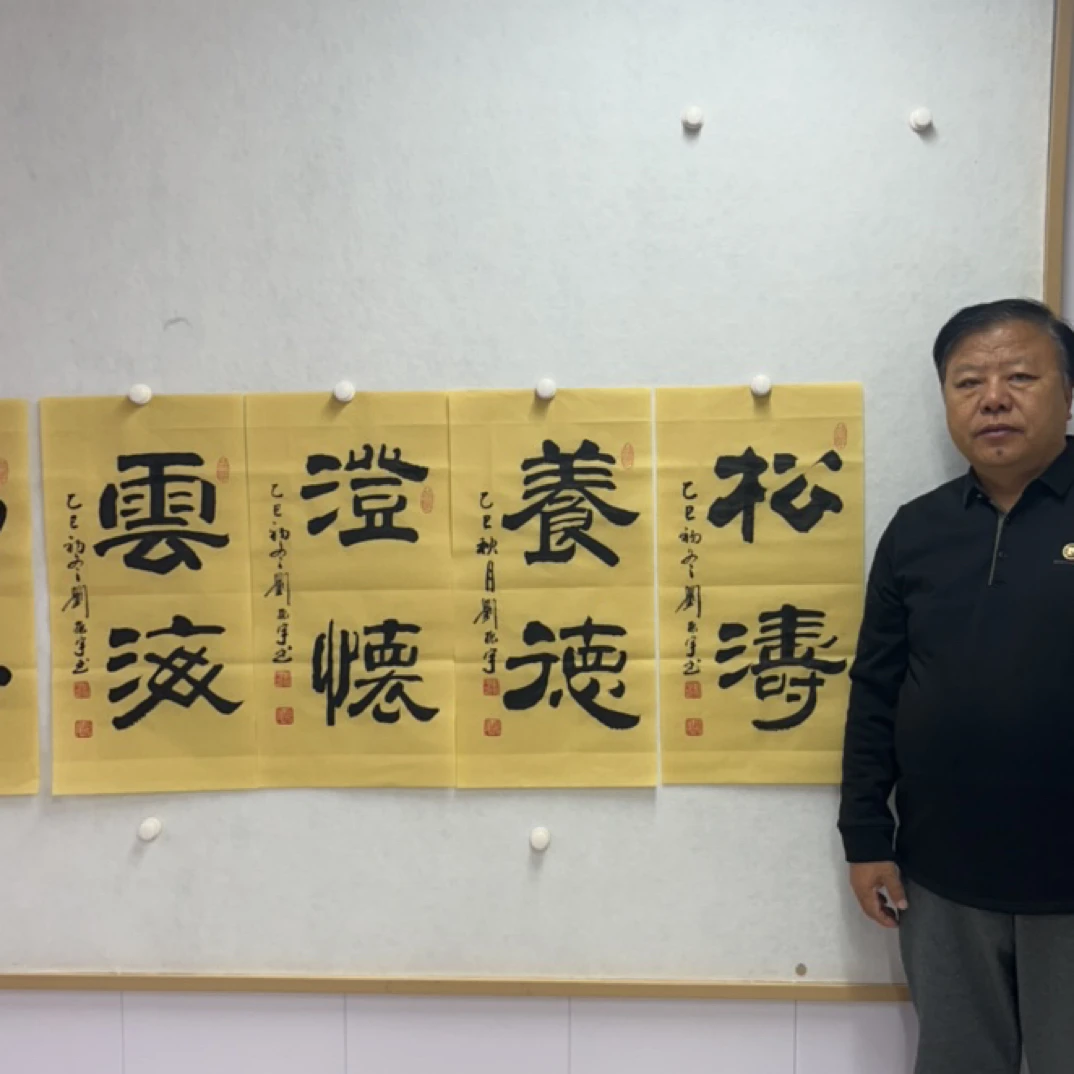 松濤
乙巳初冬劉 书
養德
乙巳秋月劉
澄懷
乙巳初冬劉 书
雲海
乙巳初冬劉 书